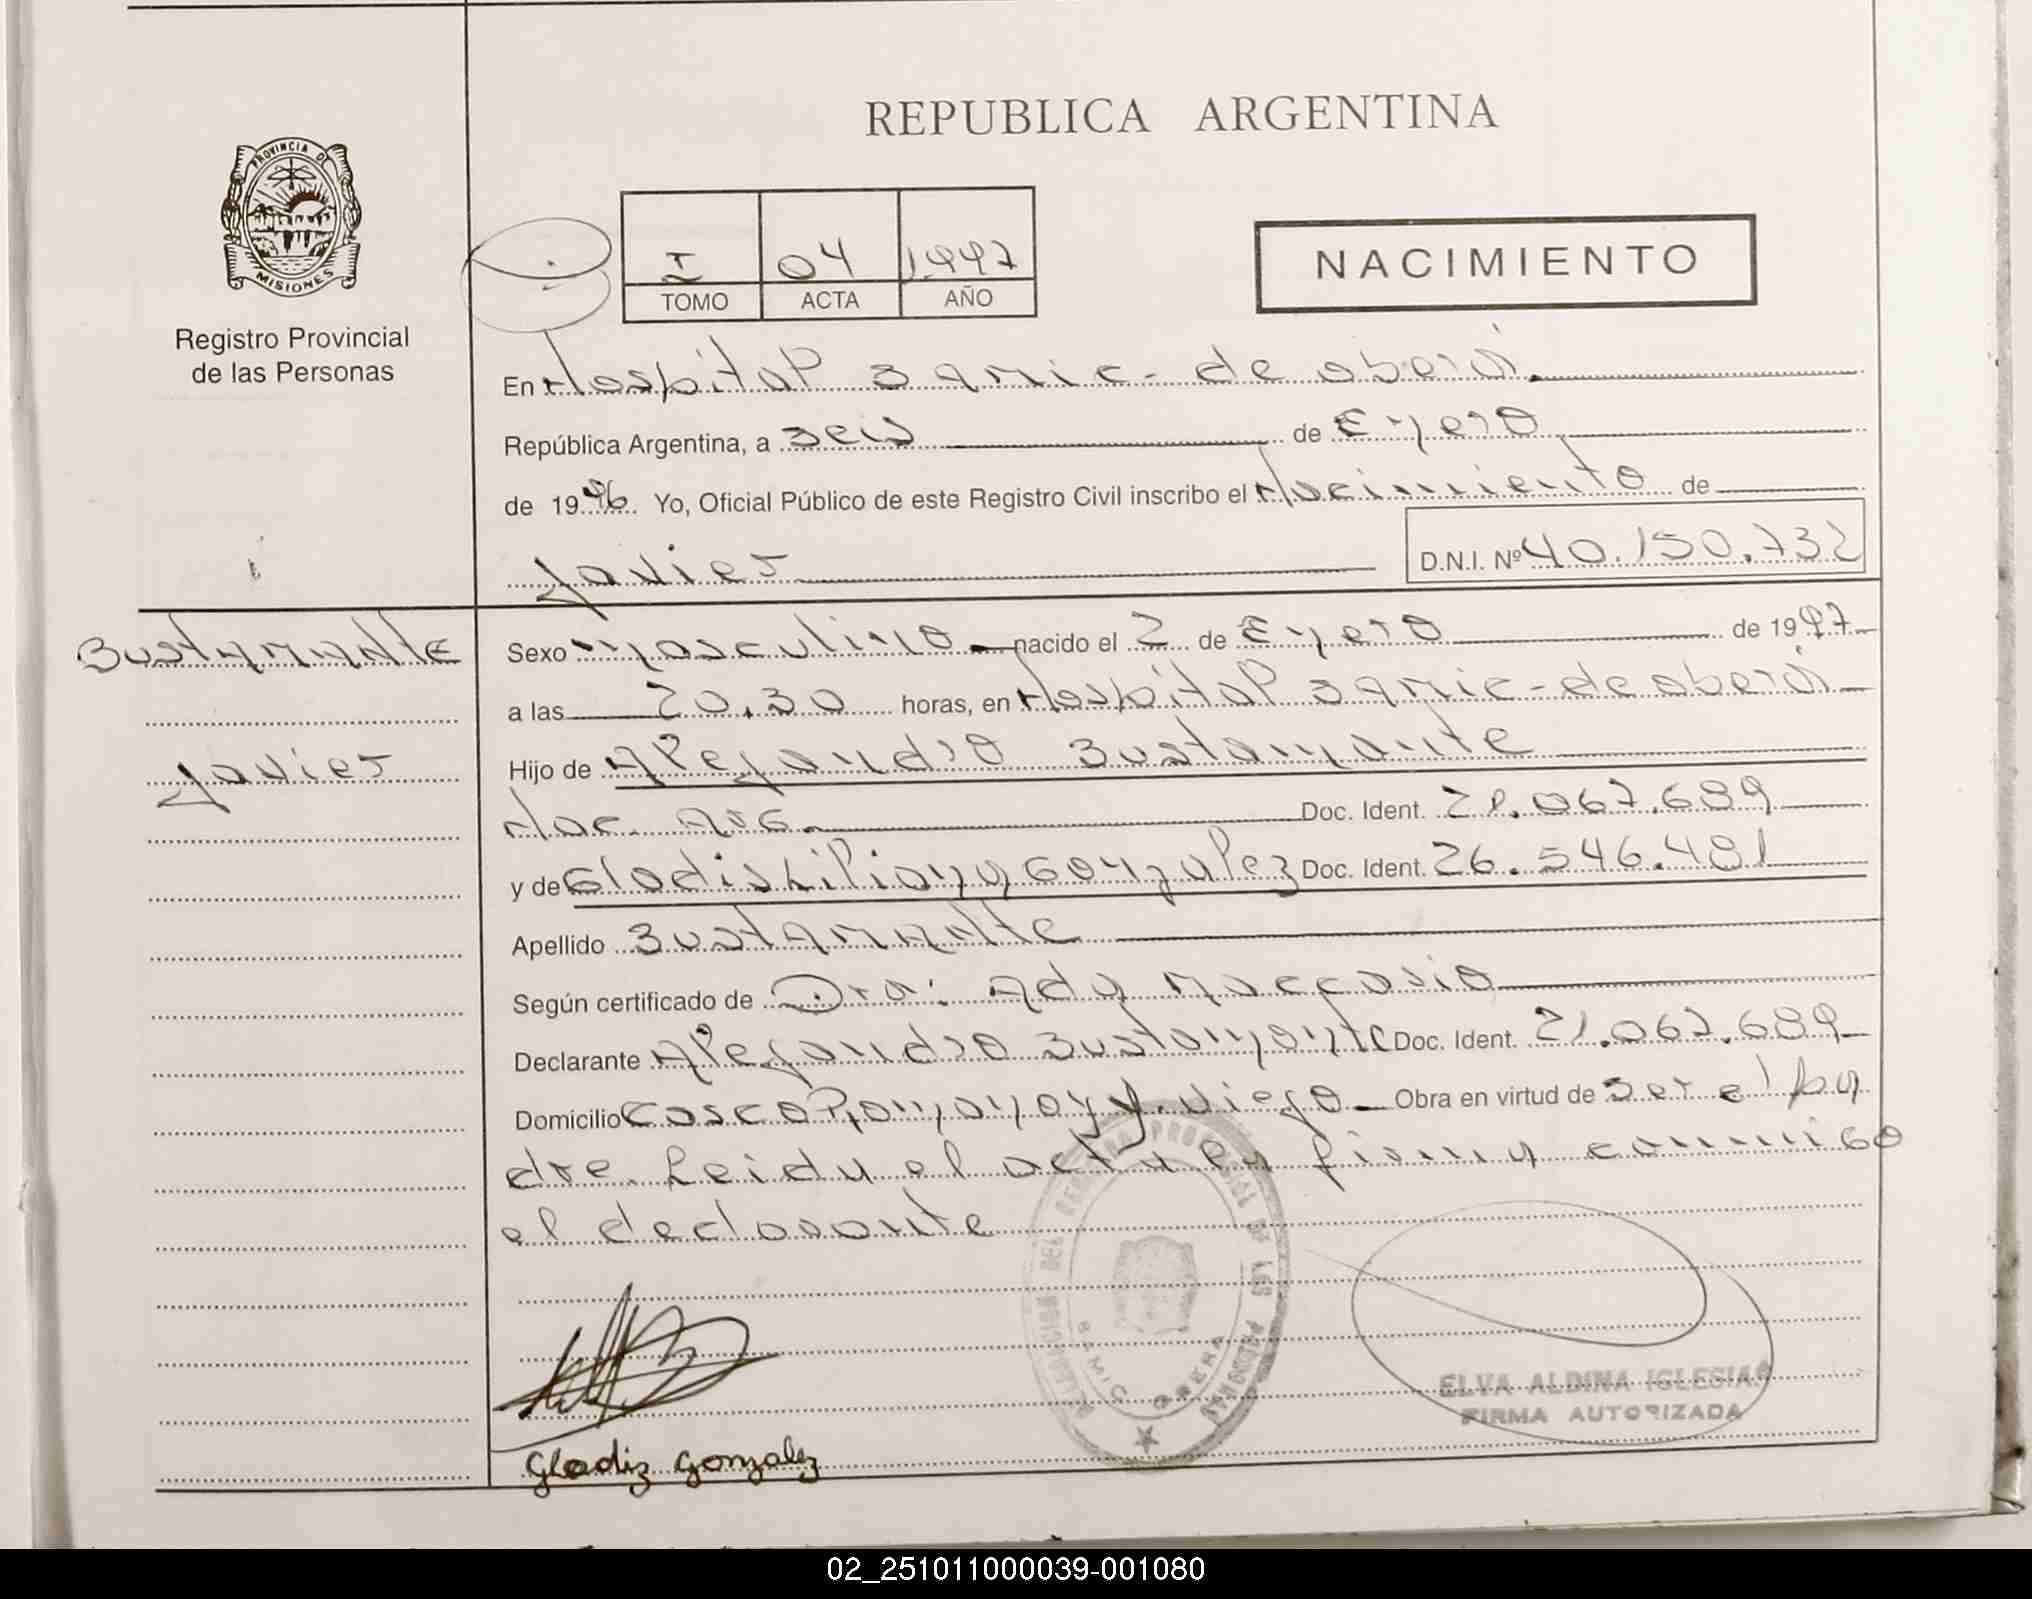 REPUBLICA ARGENTINA
PROVINCIA DE
MISIONES
Registro Provincial
de las Personas
I 04 1997
TOMO ACTA AÑO
NACIMIENTO
En Hospital Samic - de oberá
República Argentina, a seis de Enero
de 1996 Yo, Oficial Público de este Registro Civil inscribo el Nacimiento de
Javier D.N.I. Nº 40.150.732
Bustamante
Javier
Sexo Masculino nacido el 2 de Enero de 1997
a las 20.30 horas, en Hospital Samic - de oberá
Hijo de Alejandro Bustamante
Nac. Arg. Doc. Ident. 21.067.689
y de Gladis Liliana Gonzalez Doc. Ident. 26.546.481
Apellido Bustamante
Según certificado de Dra: Ada
Declarante Alejandro Bustamante Doc. Ident. 21.067.689
Domicilio viejo Obra en virtud de ser el pa
dre. Leida el acta la firma conmigo
el declarante
DELEGACION DEL REGISTRO PROVINCIAL DE LAS PERSONAS
SAMIC OBERA
ELVA ALDINA IGLESIAS
FIRMA AUTORIZADA
Gladiz Gonzalez
02_251011000039-001080